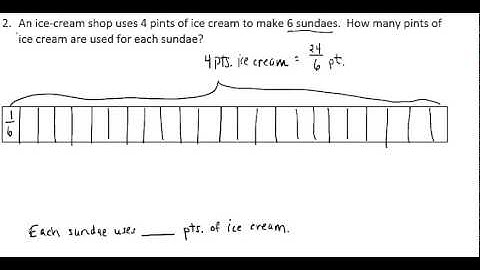 2. An ice-cream shop uses 4 pints of ice cream to make 6 sundaes. How many pints of
ice cream are used for each sundae?
4 pts. ice cream = 24/6 pt.
1/6
Each sundae uses ____ pts. of ice cream.